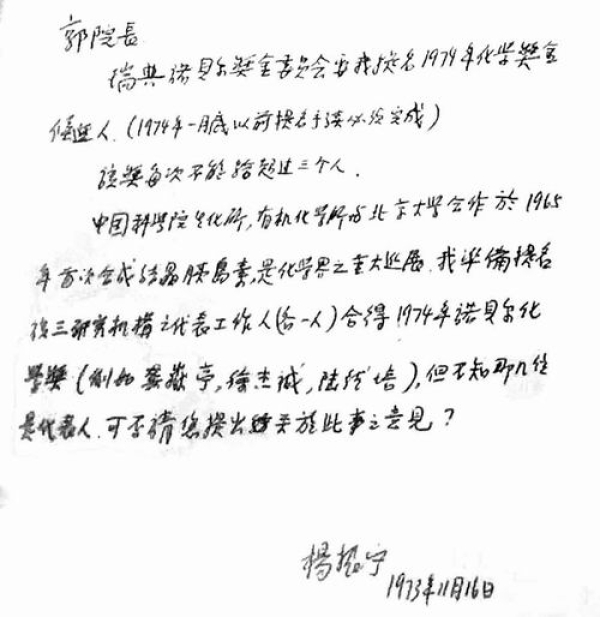 郭院長
瑞典諾貝尔獎金委員会要我提名1974年化学獎金
候選人.(1974年一月底以前提名手續必須完成)
該獎每次不能給超过三个人.
中国科學院生化所,有机化学所与北京大学合作於1965
年首次合成結晶胰島素,是化学界之重大進展.我準備提名
該三研究机構之代表工作人(各一人)合得1974年諾貝尔化
學獎(例如龚岳亭,徐杰诚,陆德培),但不知那几位
是代表人.可否請您提出关於此事之意見?
楊振宁
1973年11月16日